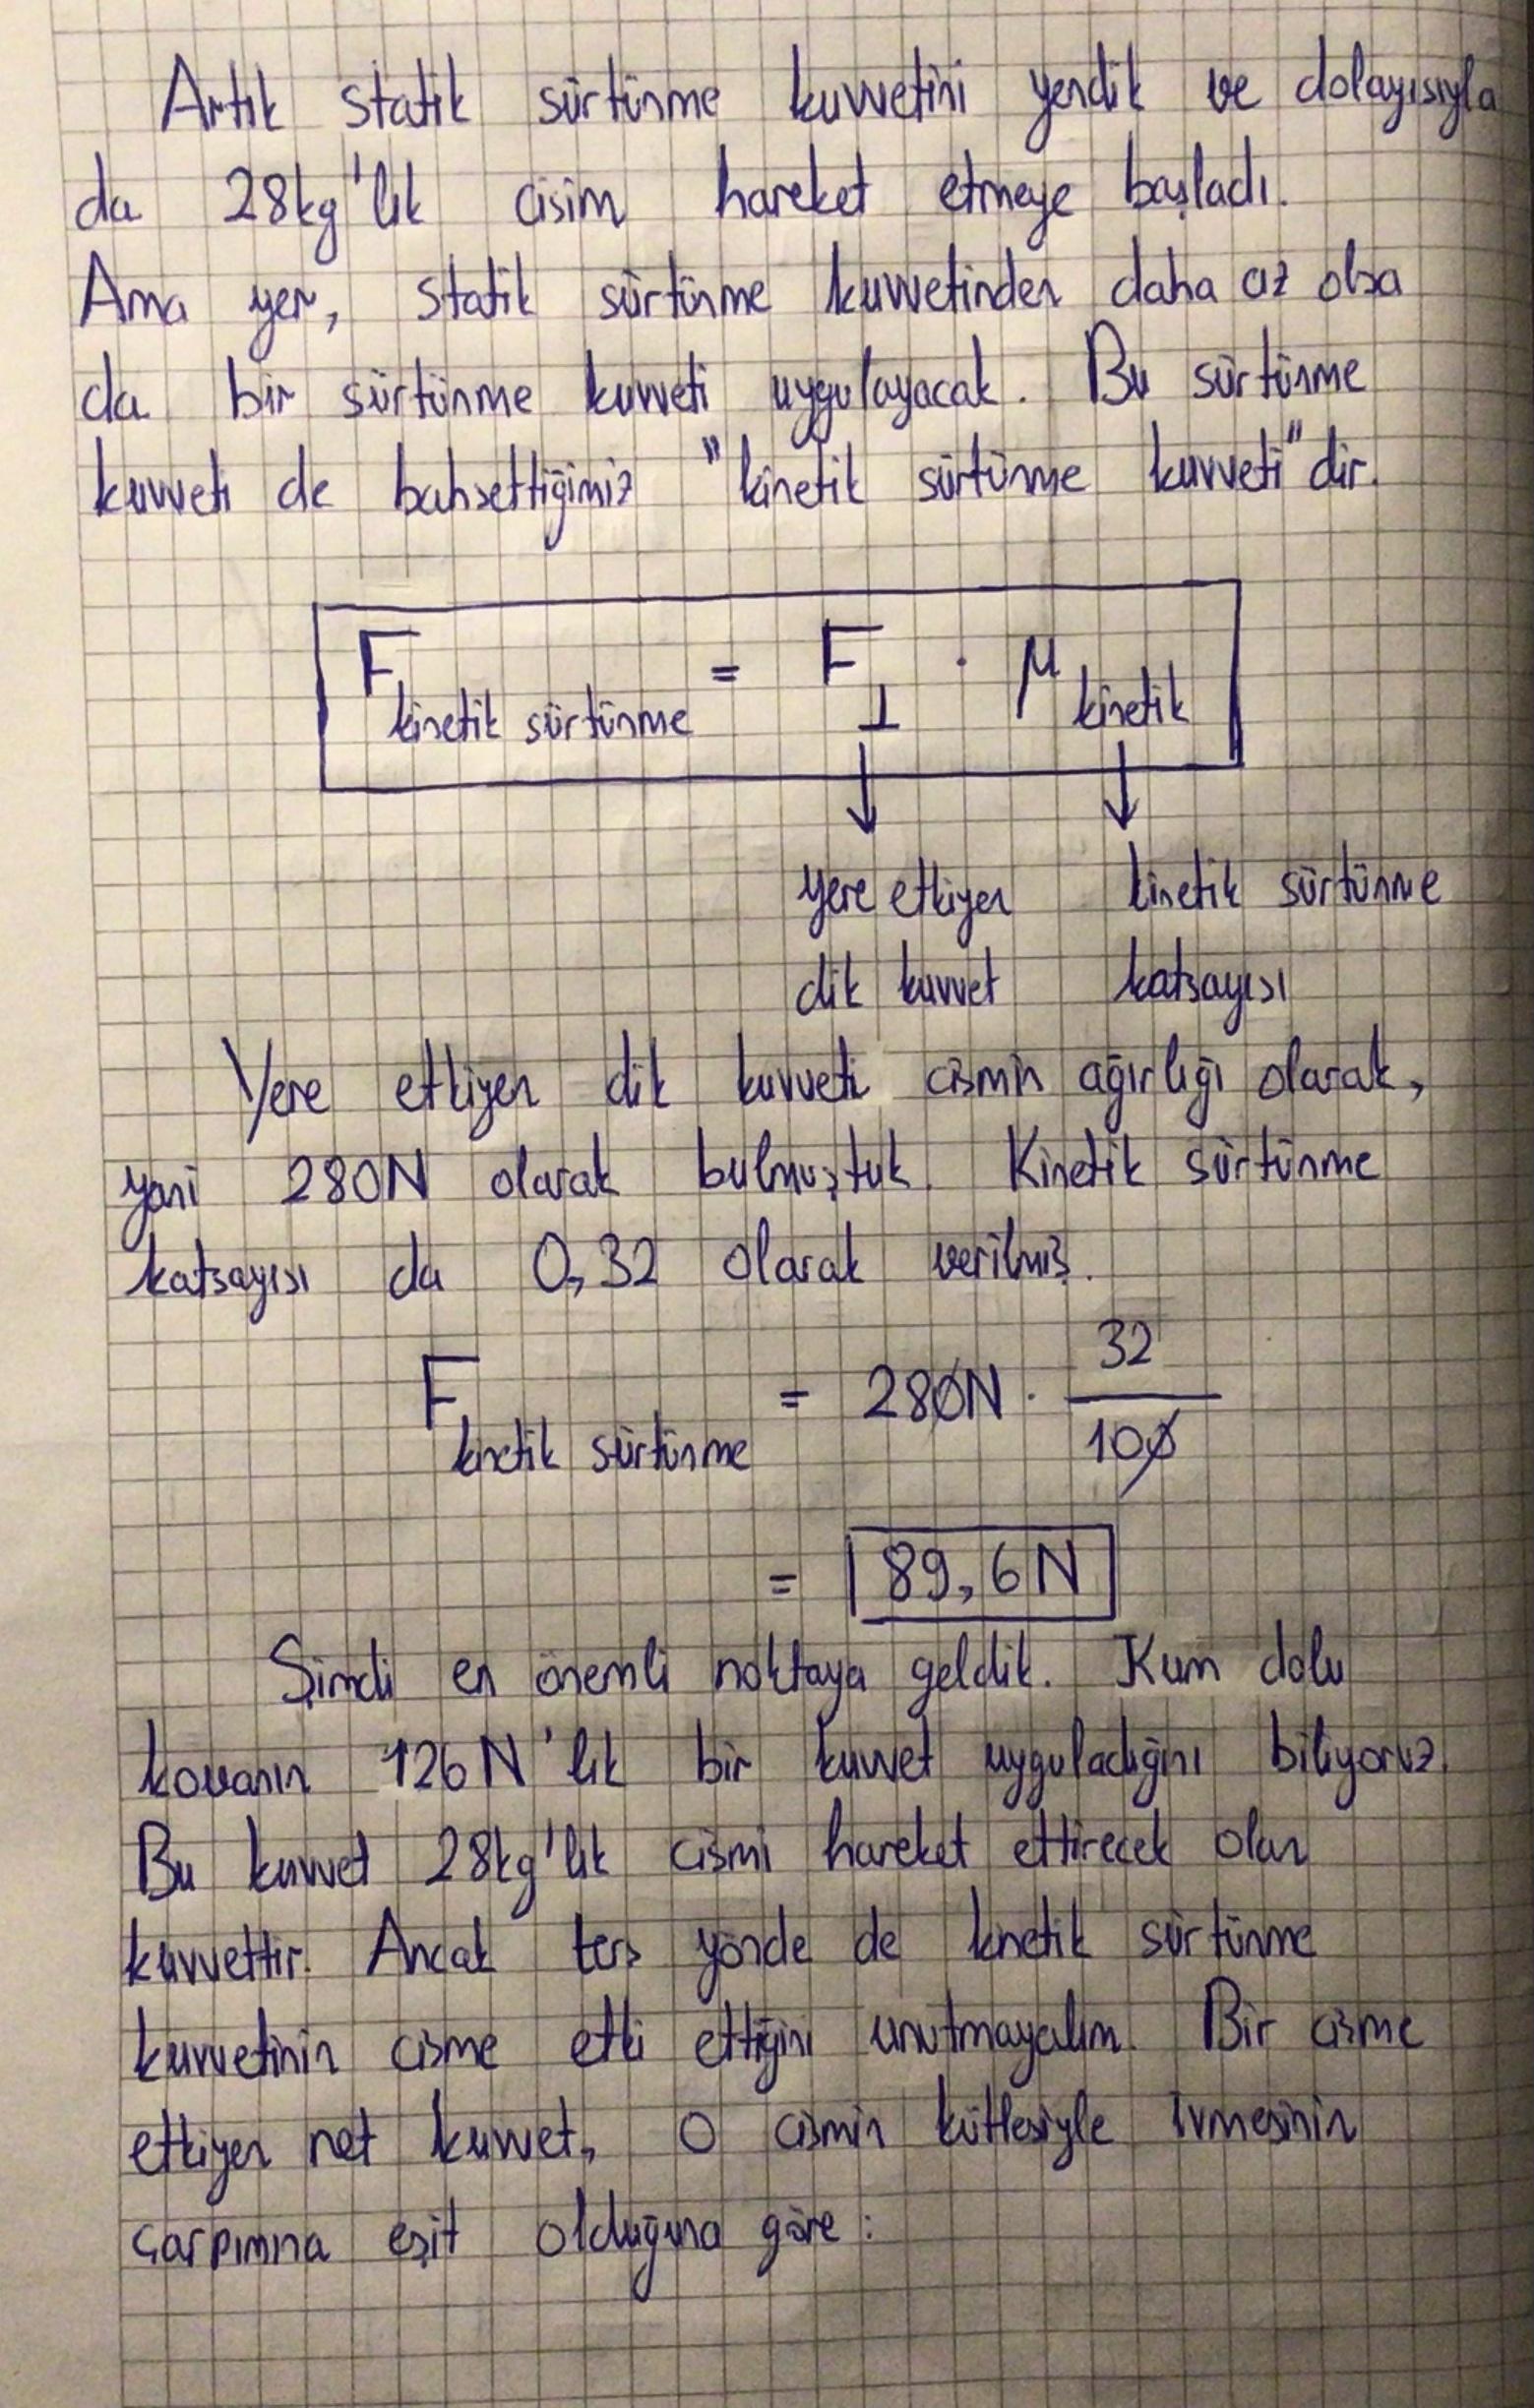 Artık statik sürtünme kuvvetini yendik ve dolayısıyla
da 28kg'lık cisim hareket etmeye başladı.
Ama yer, statik sürtünme kuvvetinden daha az olsa
da bir sürtünme kuvveti uygulayacak. Bu sürtünme
kuvveti de bahsettiğimiz "kinetik sürtünme kuvveti"dir.
F kinetik sürtünme = F⊥ · μ kinetik
yere etkiyen kinetik sürtünme
dik kuvvet katsayısı
Yere etkiyen dik kuvveti cismin ağırlığı olarak,
yani 280N olarak bulmuştuk. Kinetik sürtünme
katsayısı da 0,32 olarak verilmiş.
F kinetik sürtünme = 280N · 32/100
= 89,6N
Şimdi en önemli noktaya geldik. Kum dolu
kovanın 126N'lık bir kuvvet uyguladığını biliyoruz.
Bu kuvvet 28kg'lık cismi hareket ettirecek olan
kuvvettir. Ancak ters yönde de kinetik sürtünme
kuvvetinin cisme etki ettiğini unutmayalım. Bir cisme
etkiyen net kuvvet, o cismin kütlesiyle ivmesinin
çarpımına eşit olduğuna göre: